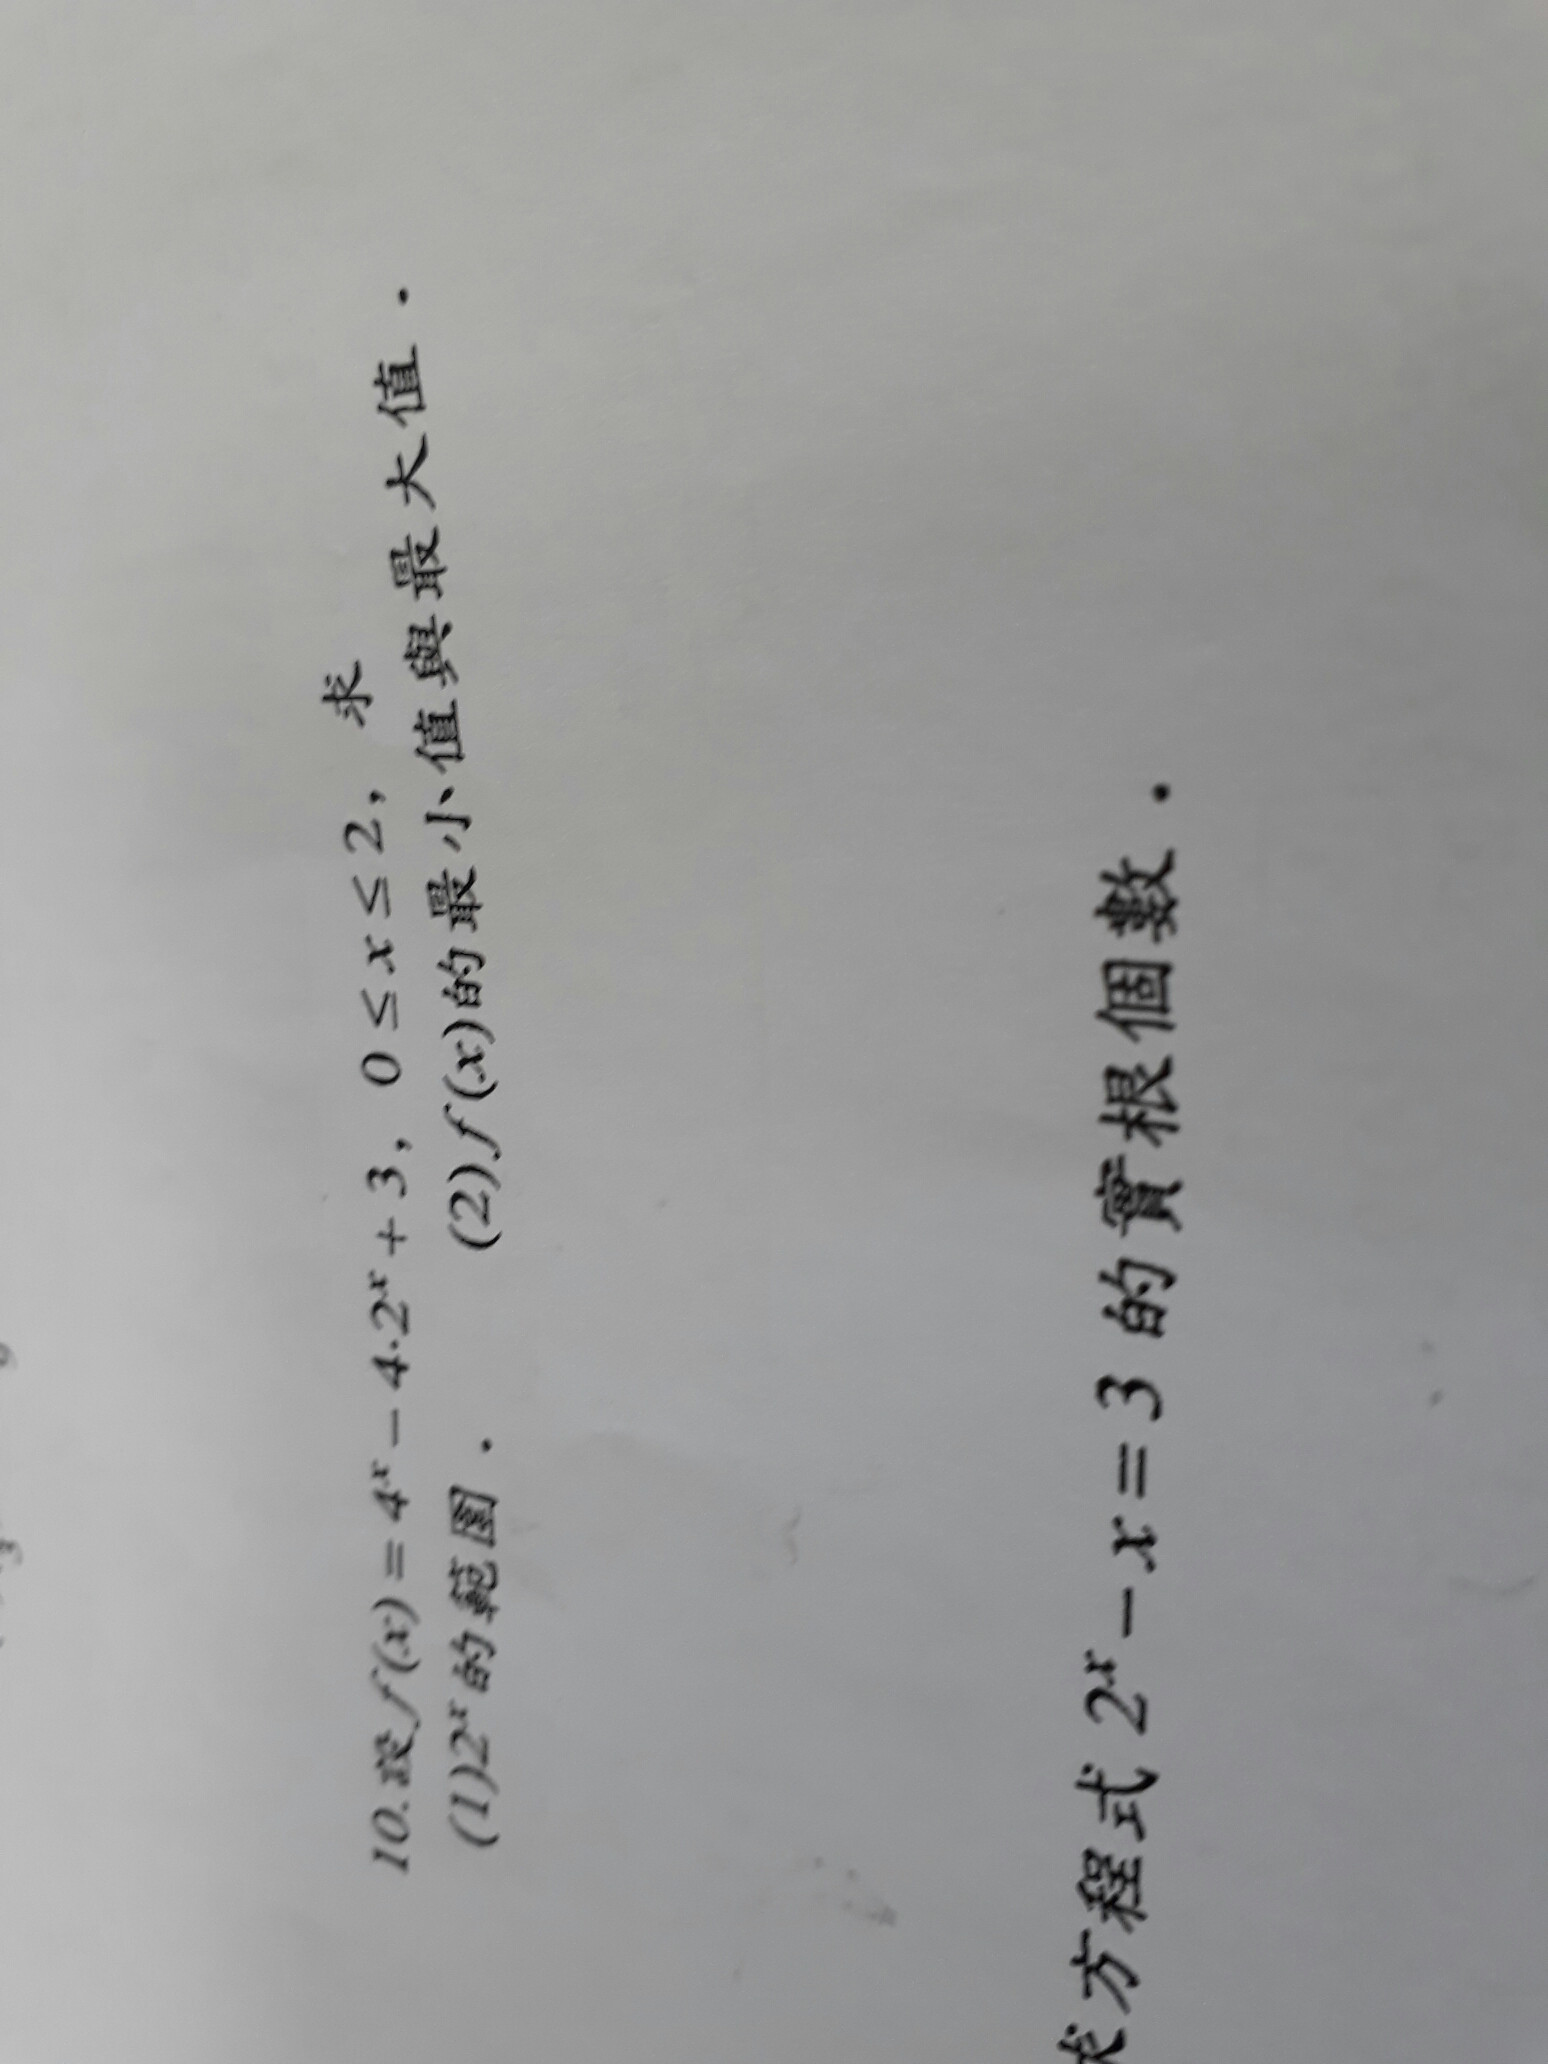 10.設f(x)=4ˣ-4·2ˣ+3, 0≤x≤2, 求
(1)2ˣ的範圍. (2)f(x)的最小值與最大值.
求方程式 2ˣ-x=3 的實根個數.